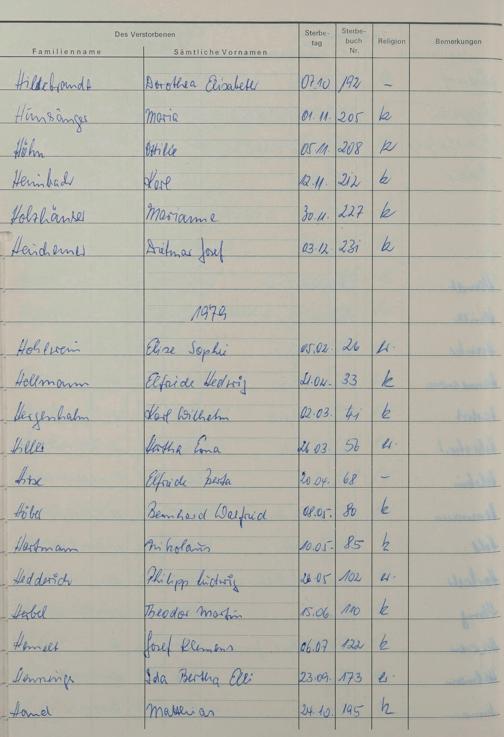 Des Verstorbenen Sterbe- Sterbe-
tag buch Religion Bemerkungen
Familienname Sämtliche Vornamen Nr.
Hildebrandt Dorothea Elisabeth 07.10 192 –
Maria 01.11. 205 k
Höhn 05.11. 208 k
Karl 12.11. 212 k
Holzhäuser Marianne 30.11. 227 k
Dietmar Josef 03.12 231 k
1979
Hohlwein Elise Sophie 05.02. 26 ev.
Hollmann Elfriede Hedwig 21.02. 33 k
Hergenhahn Karl Wilhelm 02.03. 41 k
Hiller Hertha Erna 26.03. 56 ev.
Elfriede Berta 20.04. 68 –
Höber Bernhard Walfried 08.05. 80 k
Hartmann Nikolaus 10.05. 85 k
Hedderich Philipp Ludwig 28.05 102 ev.
Herbel Theodor Martin 15.06 110 k
Josef Klemens 06.07 122 k
Hennings Ida Bertha Elli 23.09. 173 ev.
Hand Matthias 24.10. 195 k